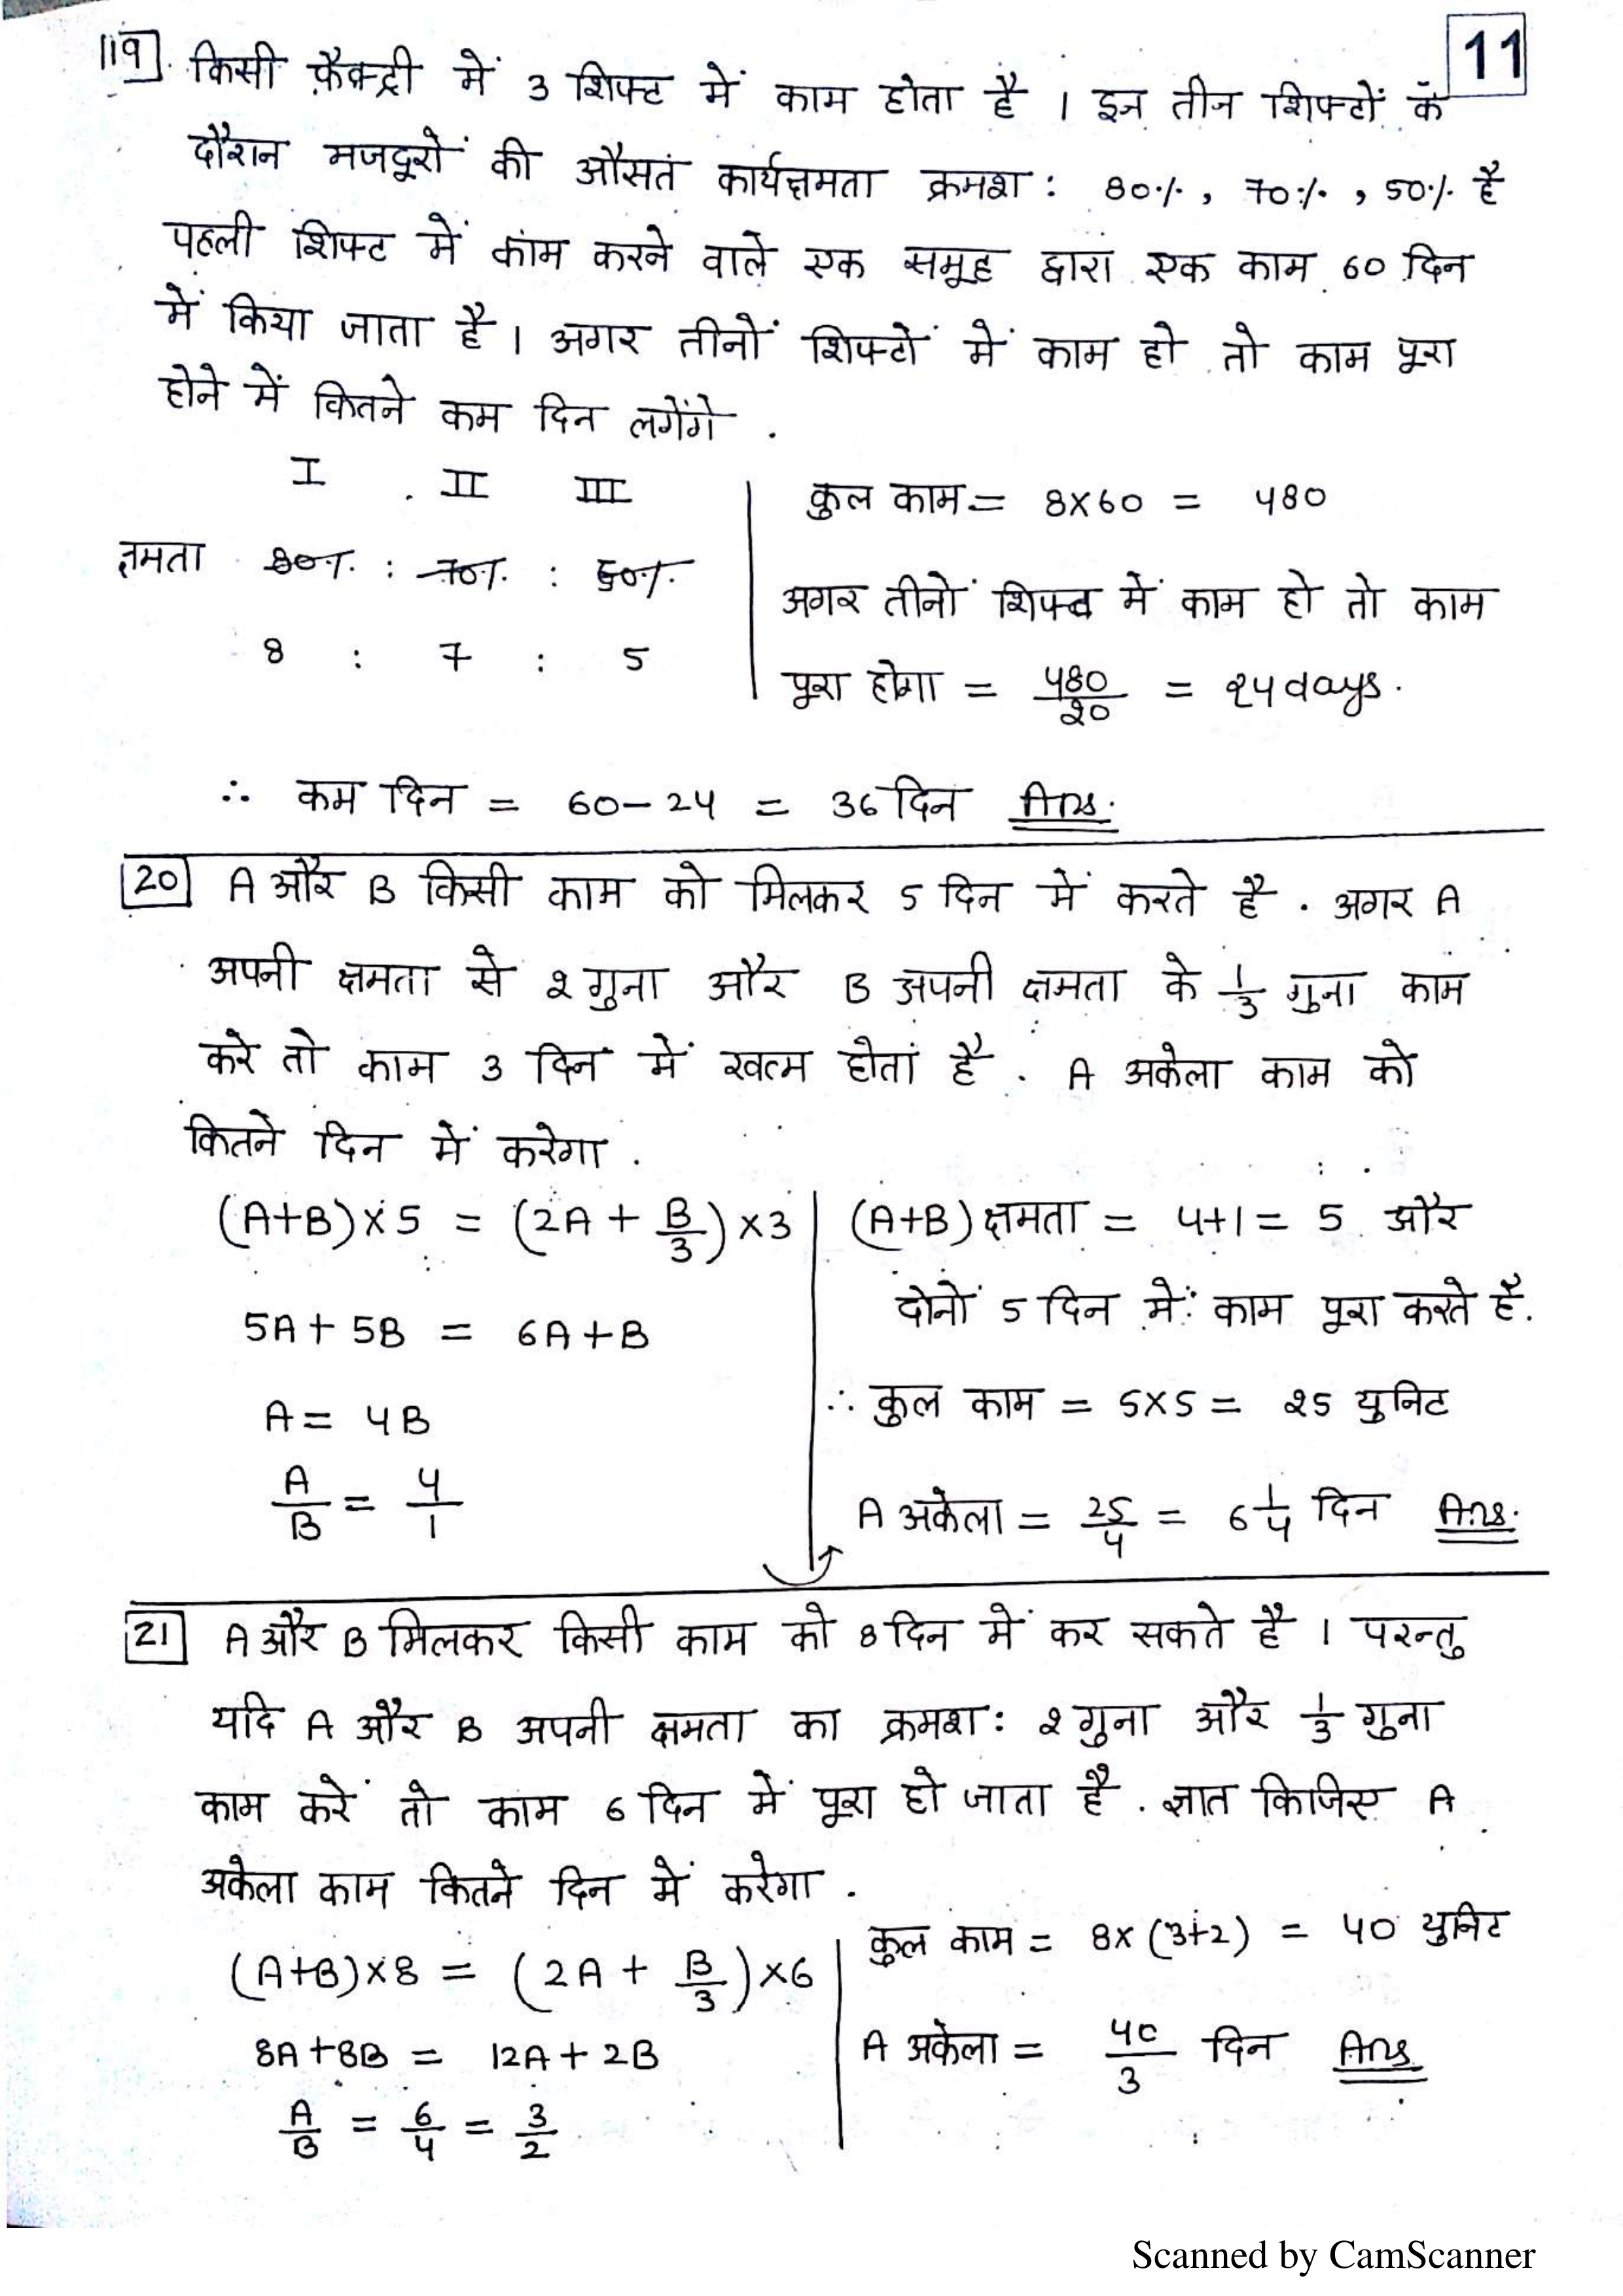 11
19 किसी फ़ैक्ट्री में 3 शिफ्ट में काम होता है । इन तीन शिफ्टों के
दौरान मजदूरों की औसत कार्यक्षमता क्रमश: 80%, 70%, 50% है
पहली शिफ्ट में काम करने वाले एक समूह द्वारा एक काम 60 दिन
में किया जाता है । अगर तीनों शिफ्टों में काम हो तो काम पूरा
होने में कितने कम दिन लगेंगे .
I II III
क्षमता 80% : 70% : 50%
8 : 7 : 5
कुल काम = 8×60 = 480
अगर तीनों शिफ्ट में काम हो तो काम
पूरा होगा = 480/20 = 24 days.
∴ कम दिन = 60-24 = 36 दिन Ans.
20 A और B किसी काम को मिलकर 5 दिन में करते है . अगर A
अपनी क्षमता से 2 गुना और B अपनी क्षमता के 1/3 गुना काम
करे तो काम 3 दिन में खत्म होता है . A अकेला काम को
कितने दिन में करेगा .
(A+B)×5 = (2A + B/3)×3
5A+5B = 6A+B
A = 4B
A/B = 4/1
(A+B) क्षमता = 4+1 = 5 और
दोनों 5 दिन में काम पूरा करते है.
∴ कुल काम = 5×5 = 25 युनिट
A अकेला = 25/4 = 6 1/4 दिन Ans.
21 A और B मिलकर किसी काम को 8 दिन में कर सकते है । परन्तु
यदि A और B अपनी क्षमता का क्रमश: 2 गुना और 1/3 गुना
काम करें तो काम 6 दिन में पूरा हो जाता है . ज्ञात किजिए A
अकेला काम कितने दिन में करेगा .
(A+B)×8 = (2A + B/3)×6
8A+8B = 12A+2B
A/B = 6/4 = 3/2
कुल काम = 8×(3+2) = 40 युनिट
A अकेला = 40/3 दिन Ans
Scanned by CamScanner